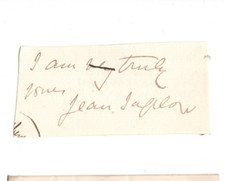 I am truly
yours
Jean Ingelow